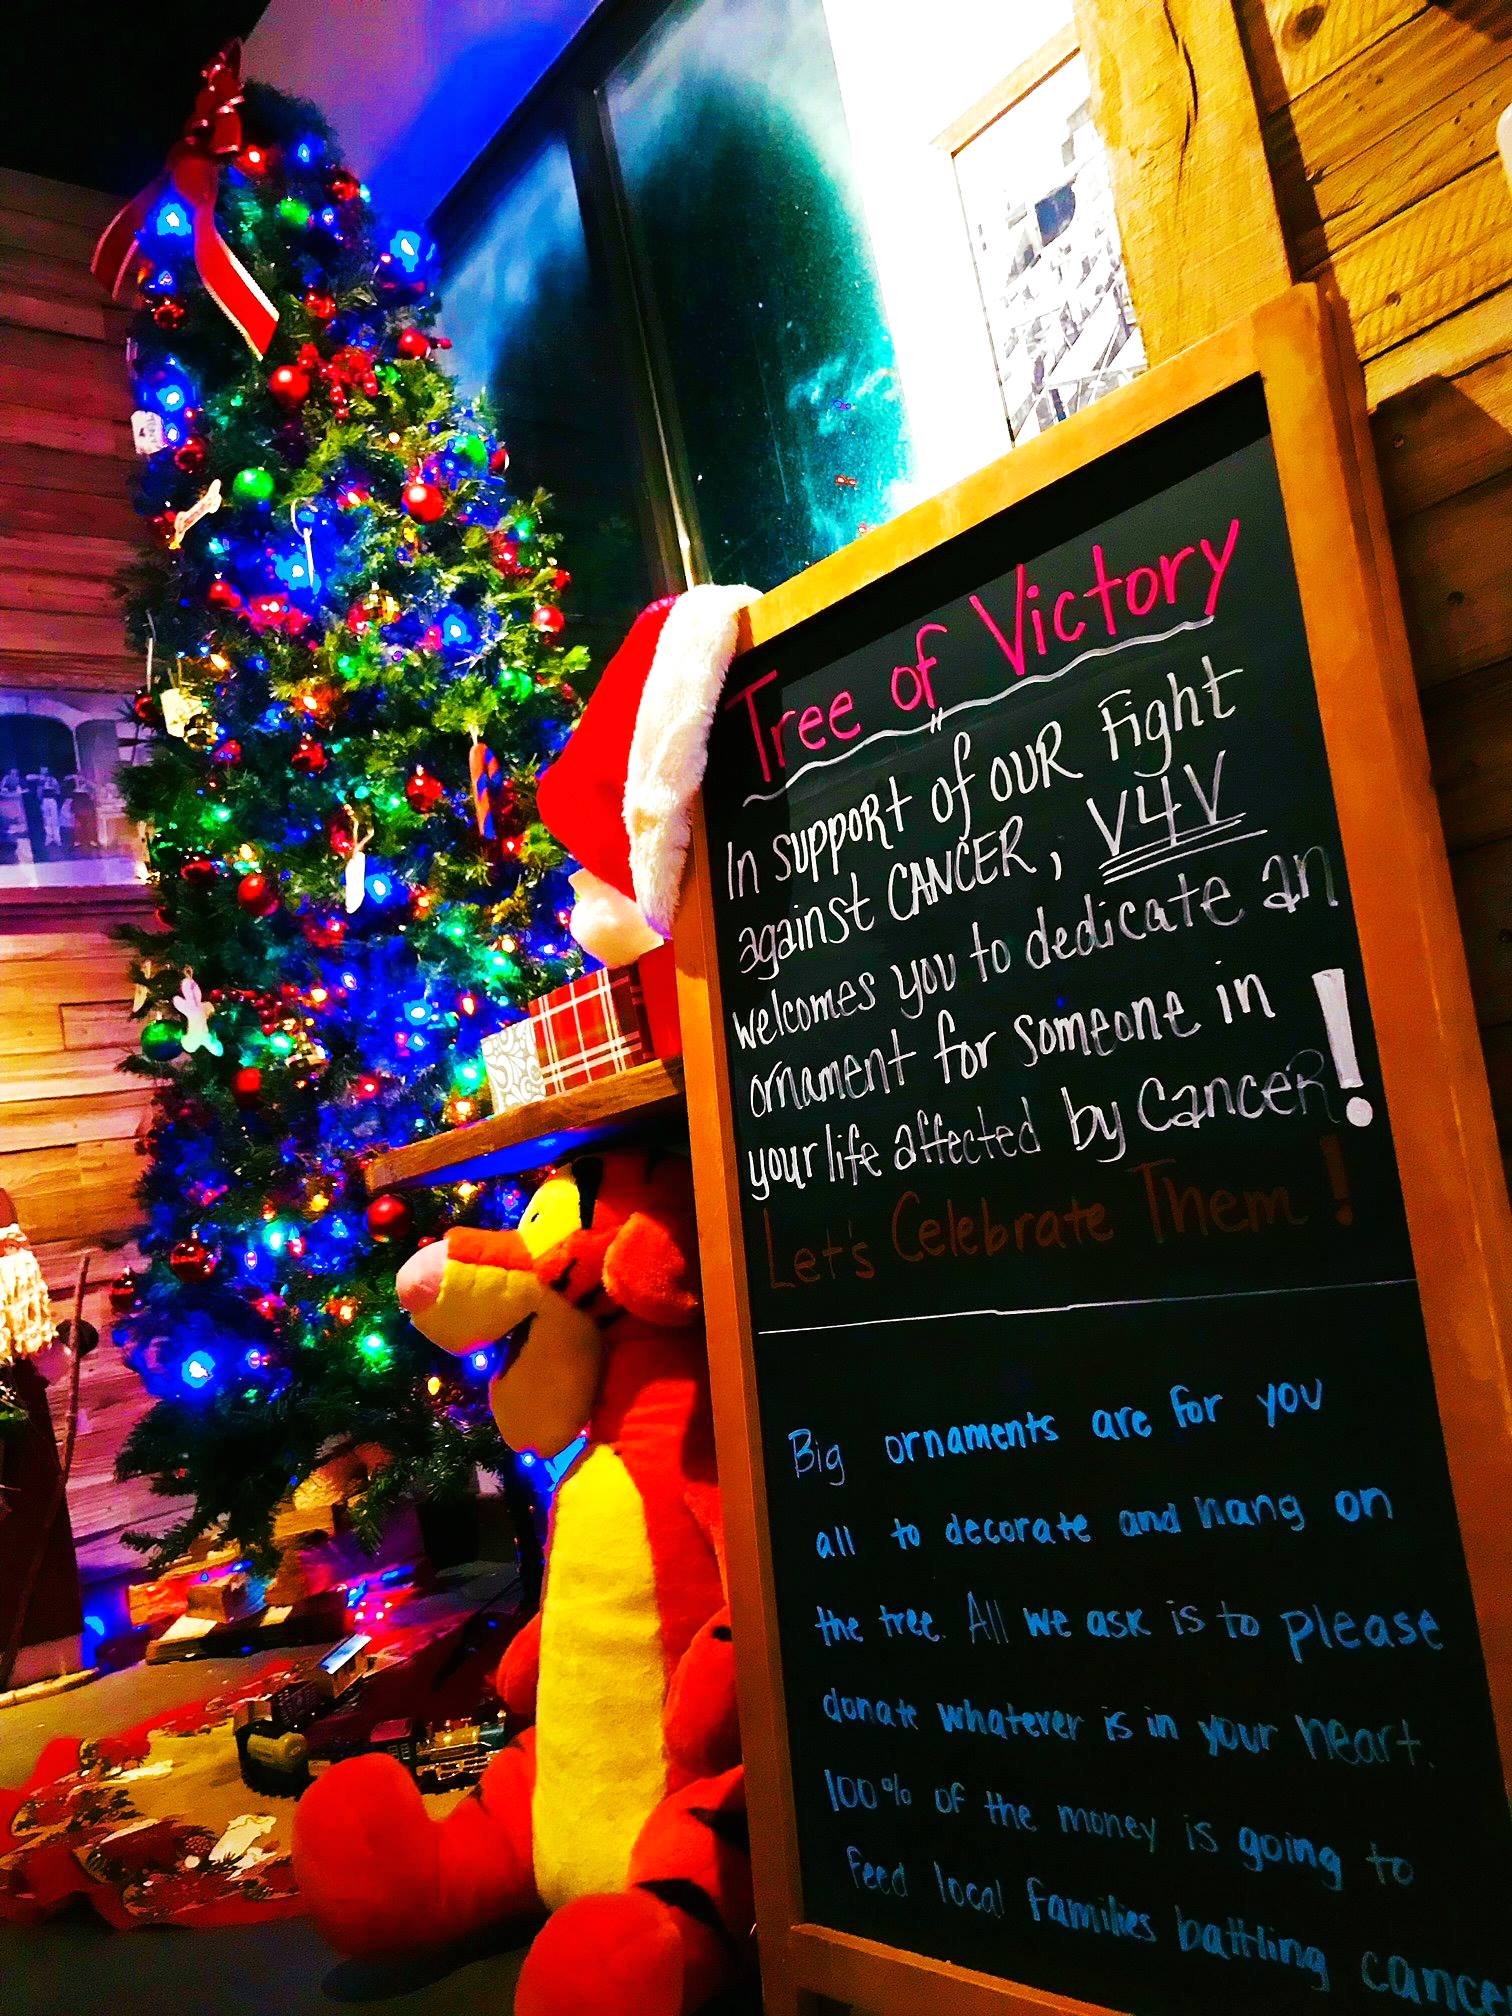 Tree of Victory
In support of our Fight
against CANCER, V4V
welcomes you to dedicate an
ornament for someone in
your life affected by Cancer!
Let's Celebrate Them!
Big ornaments are for you
all to decorate and hang on
the tree. All we ask is to please
donate whatever is in your heart.
100% of the money is going to
feed local families battling cance